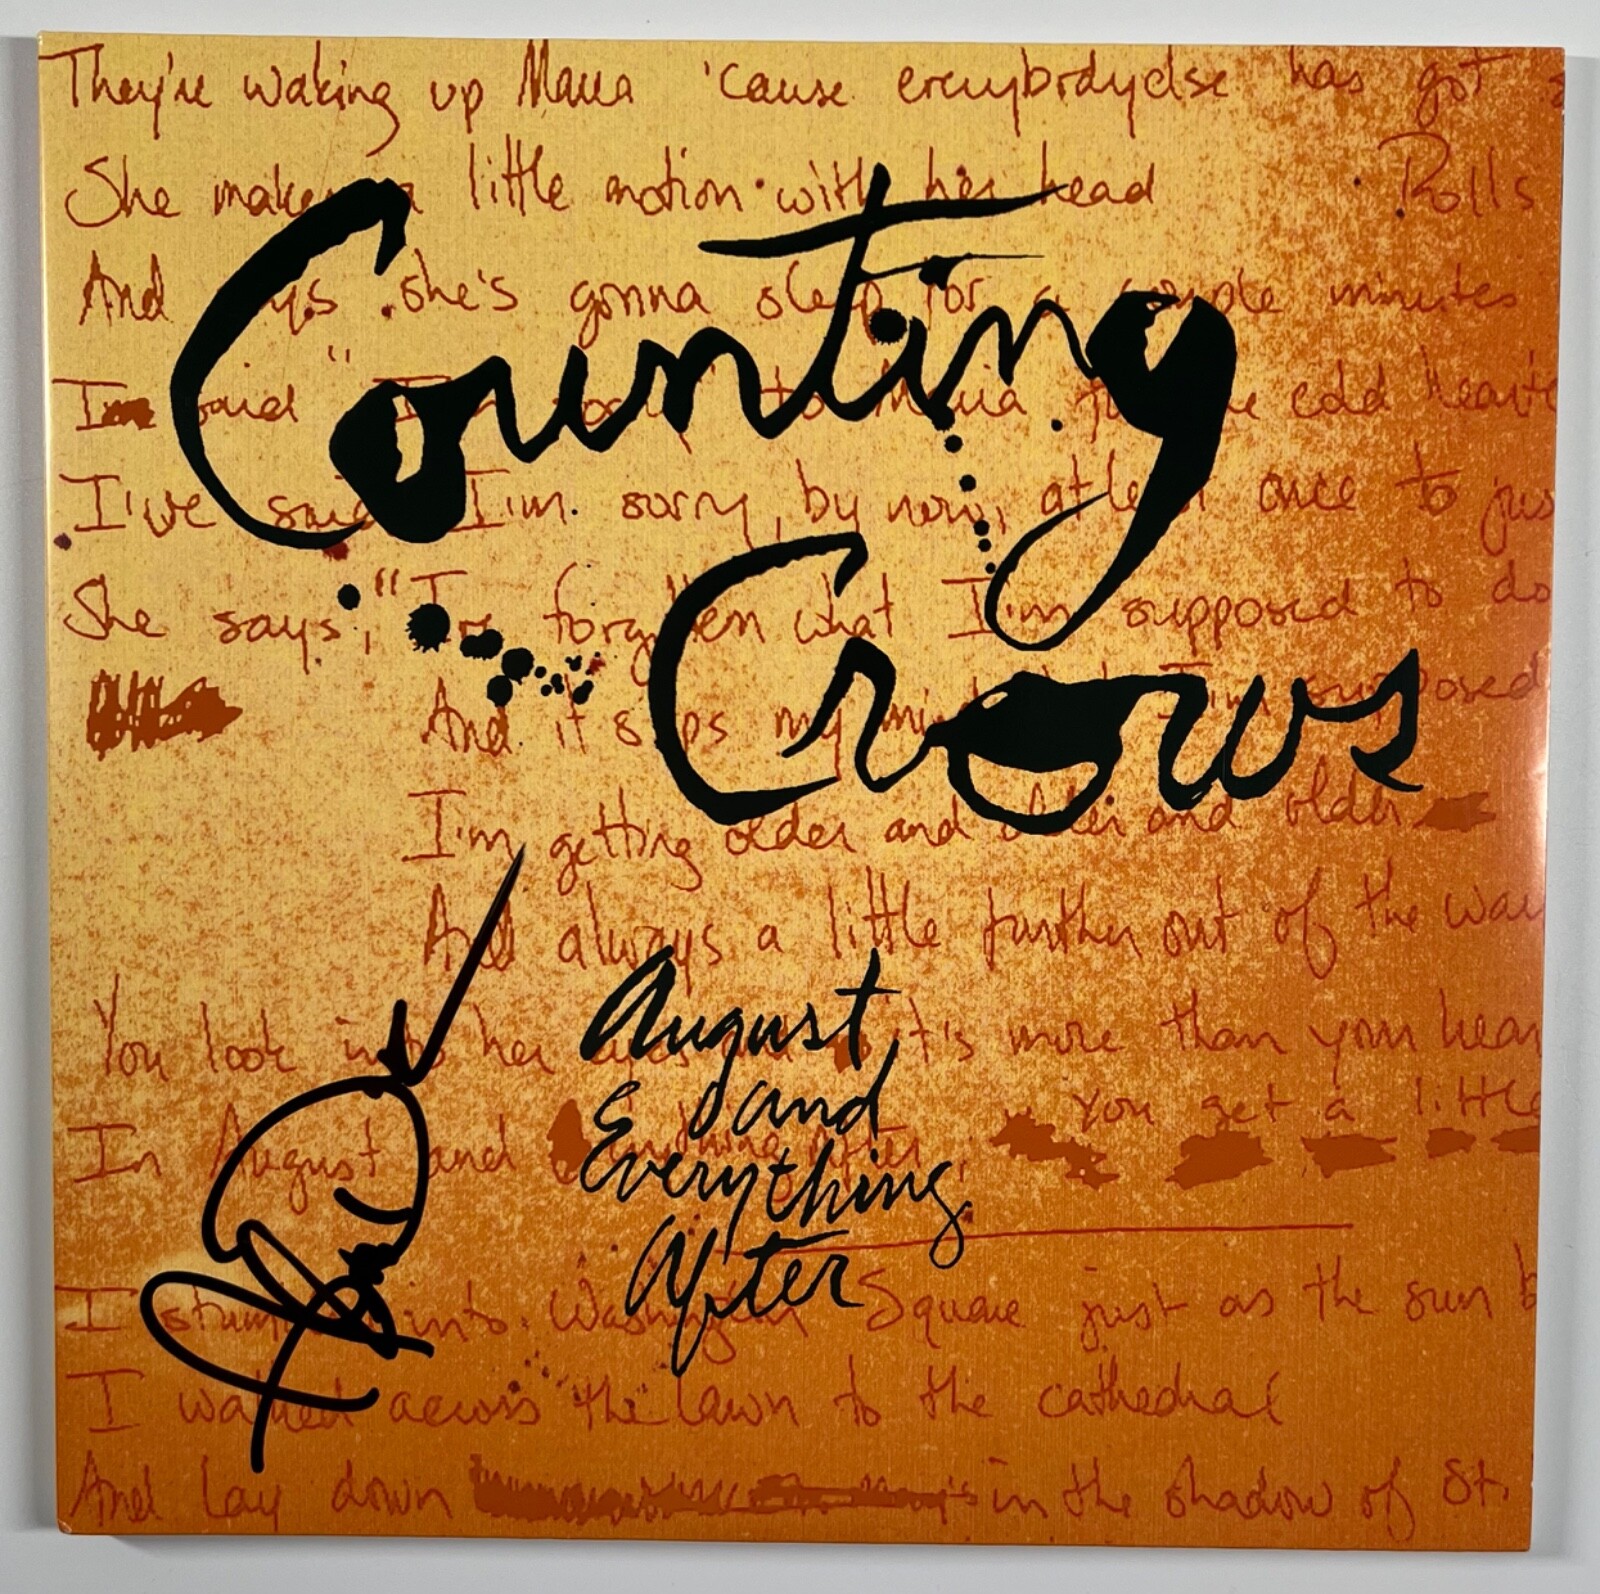 They're waking up Maria 'cause everybody else has got
She makes a little motion with her head Rolls
And says she's gonna sleep for a couple minutes
Counting
I'm said "I'm sorry to Maria for the cold hearte
I've said I'm sorry, by now, at least once to jus
Crows
She says, "I've forgotten what I'm supposed to do
And it slips my mind what I'm supposed
I'm getting older and older and older
And always a little further out of the way
August
and
Everything
After
You look into her eyes it's more than your hear
you get a little
In August and Everything After,
I stumbled into Washington Square just as the sun b
I walked across the lawn to the cathedral
And lay down in the shadow of St.